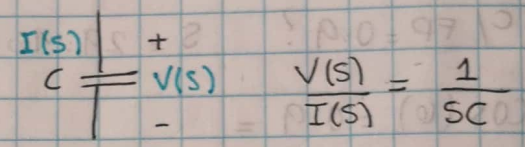 I(S) +
C V(S)
-
V(S) / I(S) = 1 / SC